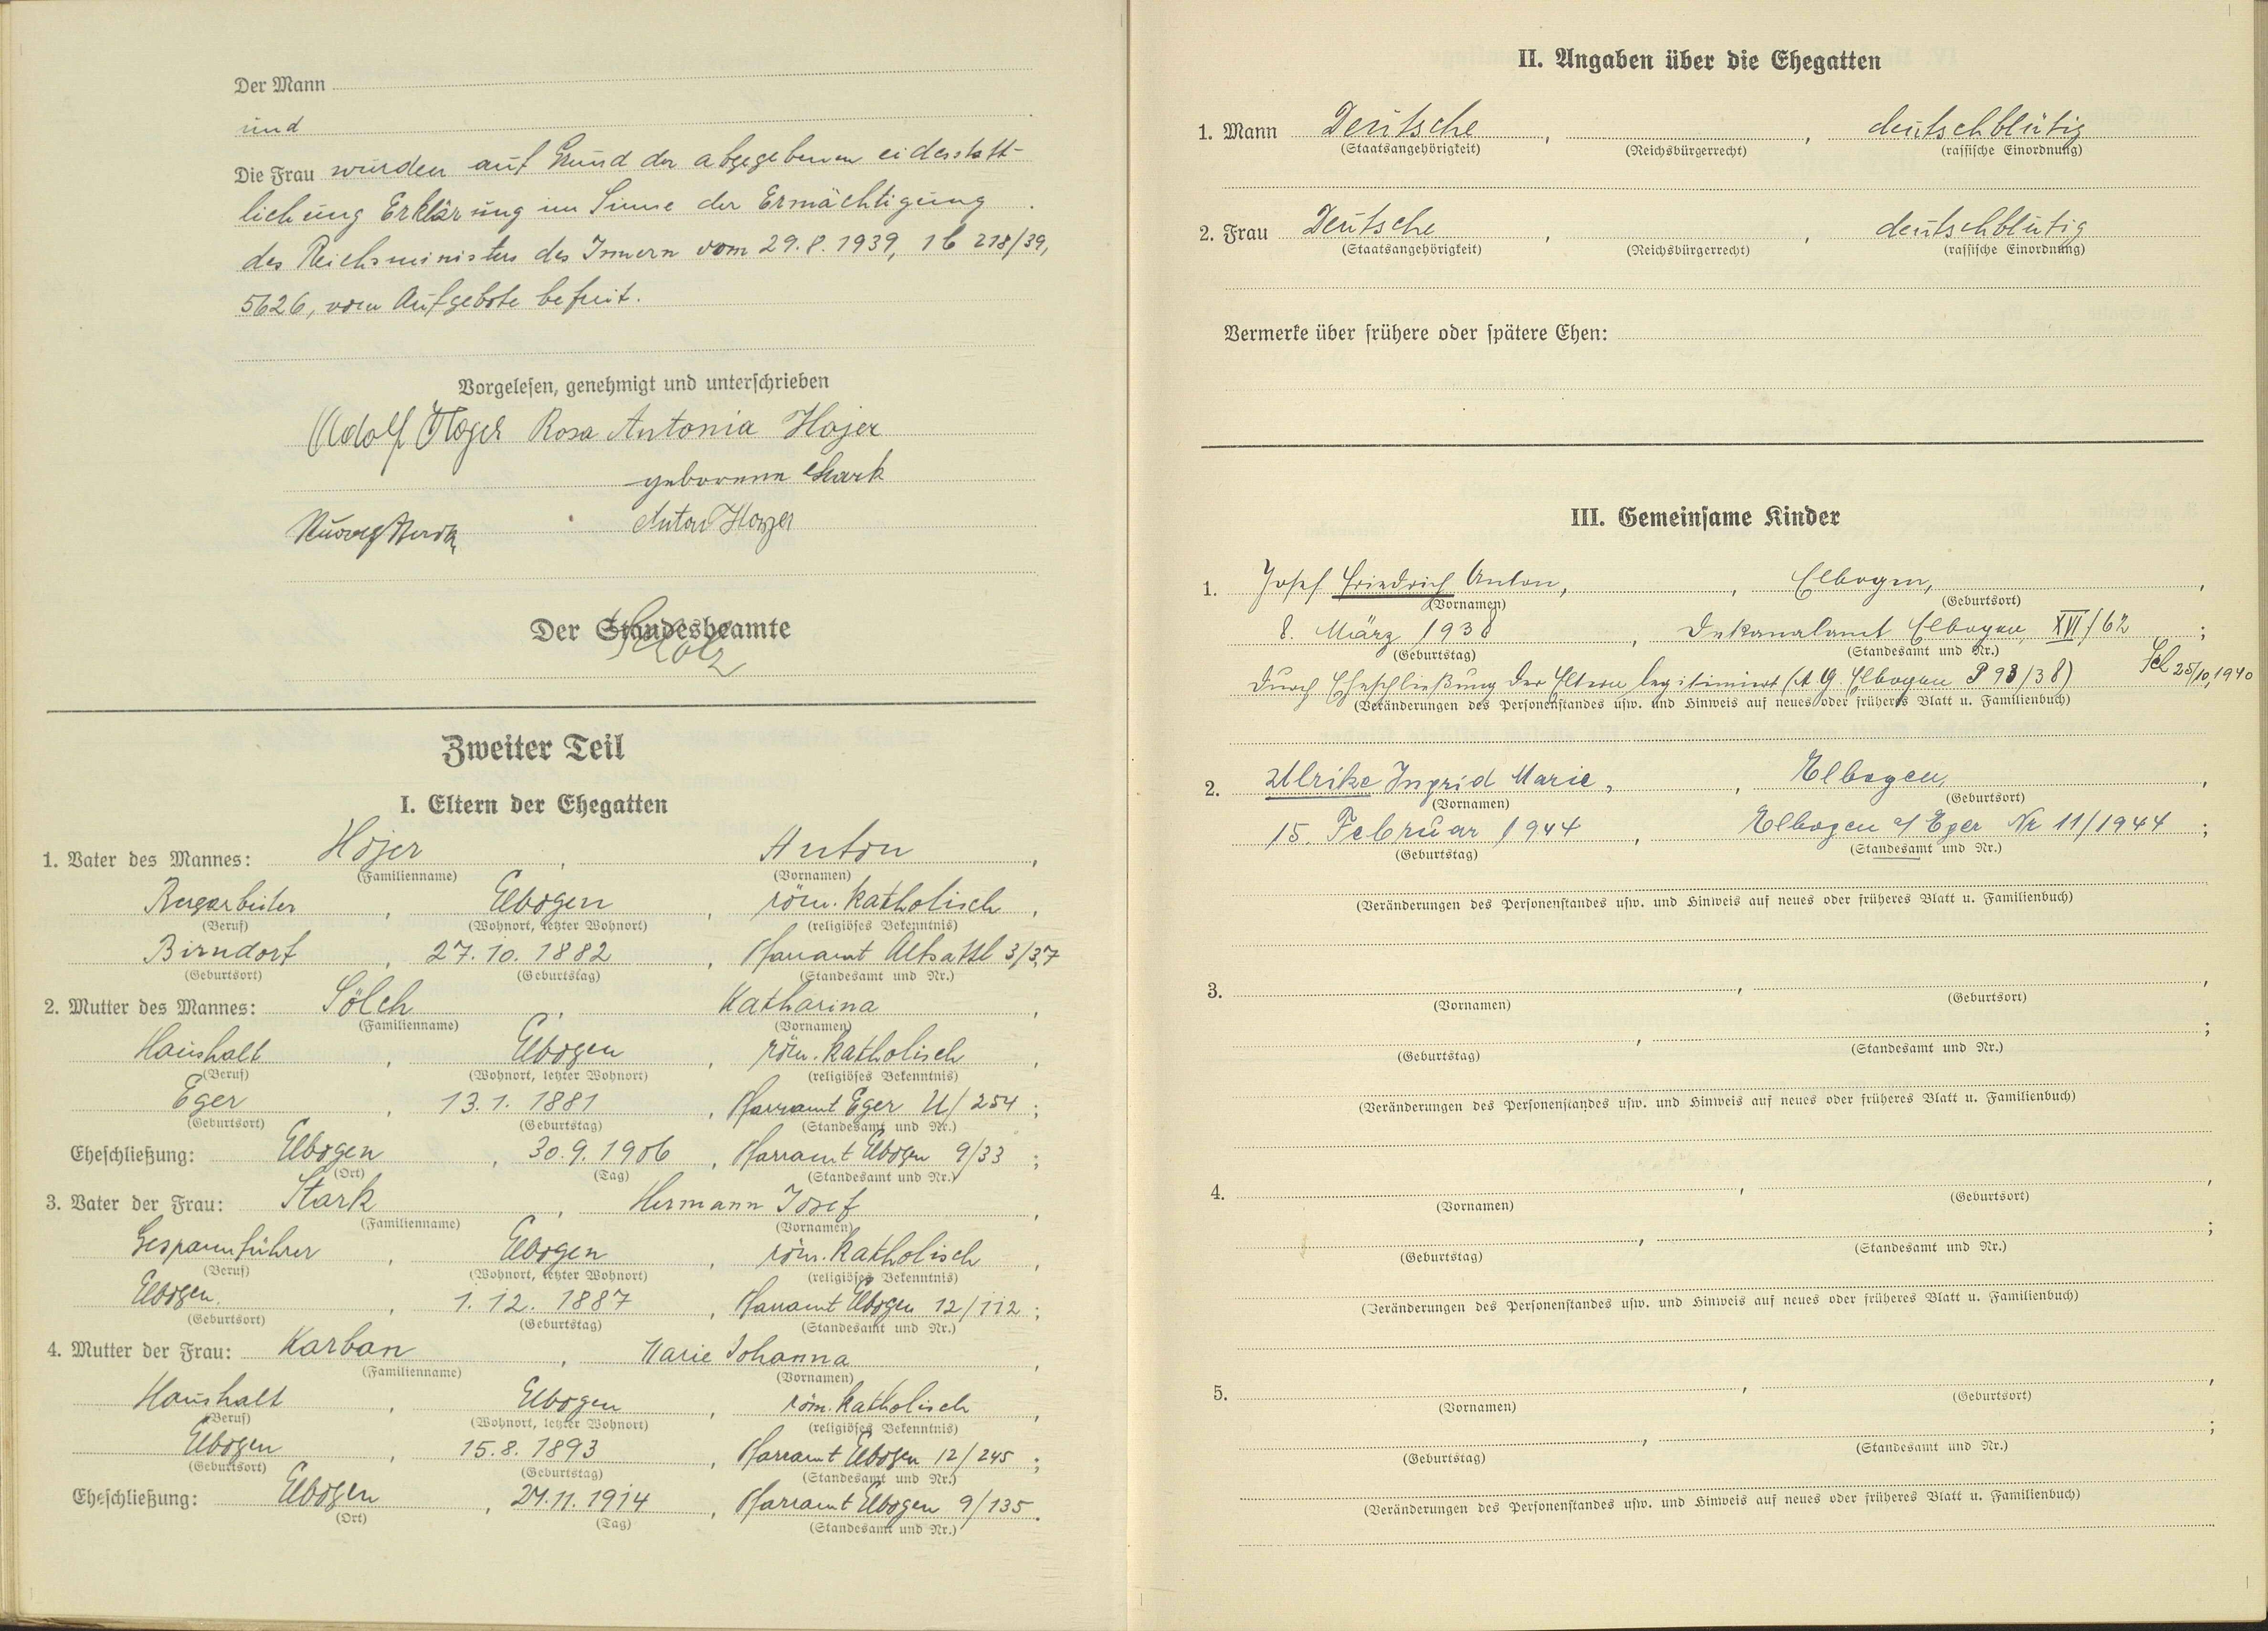 Der Mann
und
Die Frau wurden auf Grund der abgegebenen eidesstatt-
lichung Erklärung im Sinne der Ermächtigung
des Reichsministers des Innern vom 29.8.1939, Ib 218/39,
5626, vom Aufgebote befreit.
Vorgelesen, genehmigt und unterschrieben
Adolf Hojer Rosa Antonia Hojer
geborenen Stark
Anton Hojer
Der Standesbeamte
Zweiter Teil
I. Eltern der Ehegatten
1. Vater des Mannes: Hojer, Anton,
(Familienname) (Vornamen)
Bergarbeiter, Elbogen, röm. katholisch,
(Beruf) (Wohnort, letzter Wohnort) (religiöses Bekenntnis)
Birndorf, 27.10.1882, Pfarramt Altsattl 3/37
(Geburtsort) (Geburtstag) (Standesamt und Nr.)
2. Mutter des Mannes: Sölch, Katharina,
(Familienname) (Vornamen)
Haushalt, Elbogen, röm. katholisch,
(Beruf) (Wohnort, letzter Wohnort) (religiöses Bekenntnis)
Eger, 13.1.1881, Pfarramt Eger U/254;
(Geburtsort) (Geburtstag) (Standesamt und Nr.)
Eheschließung: Elbogen, 30.9.1906, Pfarramt Elbogen 9/33;
(Ort) (Tag) (Standesamt und Nr.)
3. Vater der Frau: Stark, Hermann Josef,
(Familienname) (Vornamen)
Gespannführer, Elbogen, röm. katholisch,
(Beruf) (Wohnort, letzter Wohnort) (religiöses Bekenntnis)
Elbogen, 1.12.1887, Pfarramt Elbogen 12/112;
(Geburtsort) (Geburtstag) (Standesamt und Nr.)
4. Mutter der Frau: Karban, Marie Johanna,
(Familienname) (Vornamen)
Haushalt, Elbogen, röm. katholisch,
(Beruf) (Wohnort, letzter Wohnort) (religiöses Bekenntnis)
Elbogen, 15.8.1893, Pfarramt Elbogen 12/245;
(Geburtsort) (Geburtstag) (Standesamt und Nr.)
Eheschließung: Elbogen, 24.11.1914, Pfarramt Elbogen 9/135.
(Ort) (Tag) (Standesamt und Nr.)
II. Angaben über die Ehegatten
1. Mann Deutsche, , deutschblütig
(Staatsangehörigkeit) (Reichsbürgerrecht) (rassische Einordnung)
2. Frau Deutsche, , deutschblütig
(Staatsangehörigkeit) (Reichsbürgerrecht) (rassische Einordnung)
Vermerke über frühere oder spätere Ehen:
III. Gemeinsame Kinder
1. Josef Friedrich Anton, , Elbogen,
(Vornamen) (Geburtsort)
8. März 1938, Dekanalamt Elbogen, XVI/62;
(Geburtstag) (Standesamt und Nr.)
Durch Eheschließung der Eltern legitimiert (A.G. Elbogen P 93/38) 25/10,1940
(Veränderungen des Personenstandes usw. und Hinweis auf neues oder früheres Blatt u. Familienbuch)
2. Ulrike Ingrid Marie, , Elbogen,
(Vornamen) (Geburtsort)
15. Februar 1944, Elbogen a/Eger Nr 11/1944;
(Geburtstag) (Standesamt und Nr.)
(Veränderungen des Personenstandes usw. und Hinweis auf neues oder früheres Blatt u. Familienbuch)
3. , ,
(Vornamen) (Geburtsort)
, ;
(Geburtstag) (Standesamt und Nr.)
(Veränderungen des Personenstandes usw. und Hinweis auf neues oder früheres Blatt u. Familienbuch)
4. , ,
(Vornamen) (Geburtsort)
, ;
(Geburtstag) (Standesamt und Nr.)
(Veränderungen des Personenstandes usw. und Hinweis auf neues oder früheres Blatt u. Familienbuch)
5. , ,
(Vornamen) (Geburtsort)
, ;
(Geburtstag) (Standesamt und Nr.)
(Veränderungen des Personenstandes usw. und Hinweis auf neues oder früheres Blatt u. Familienbuch)